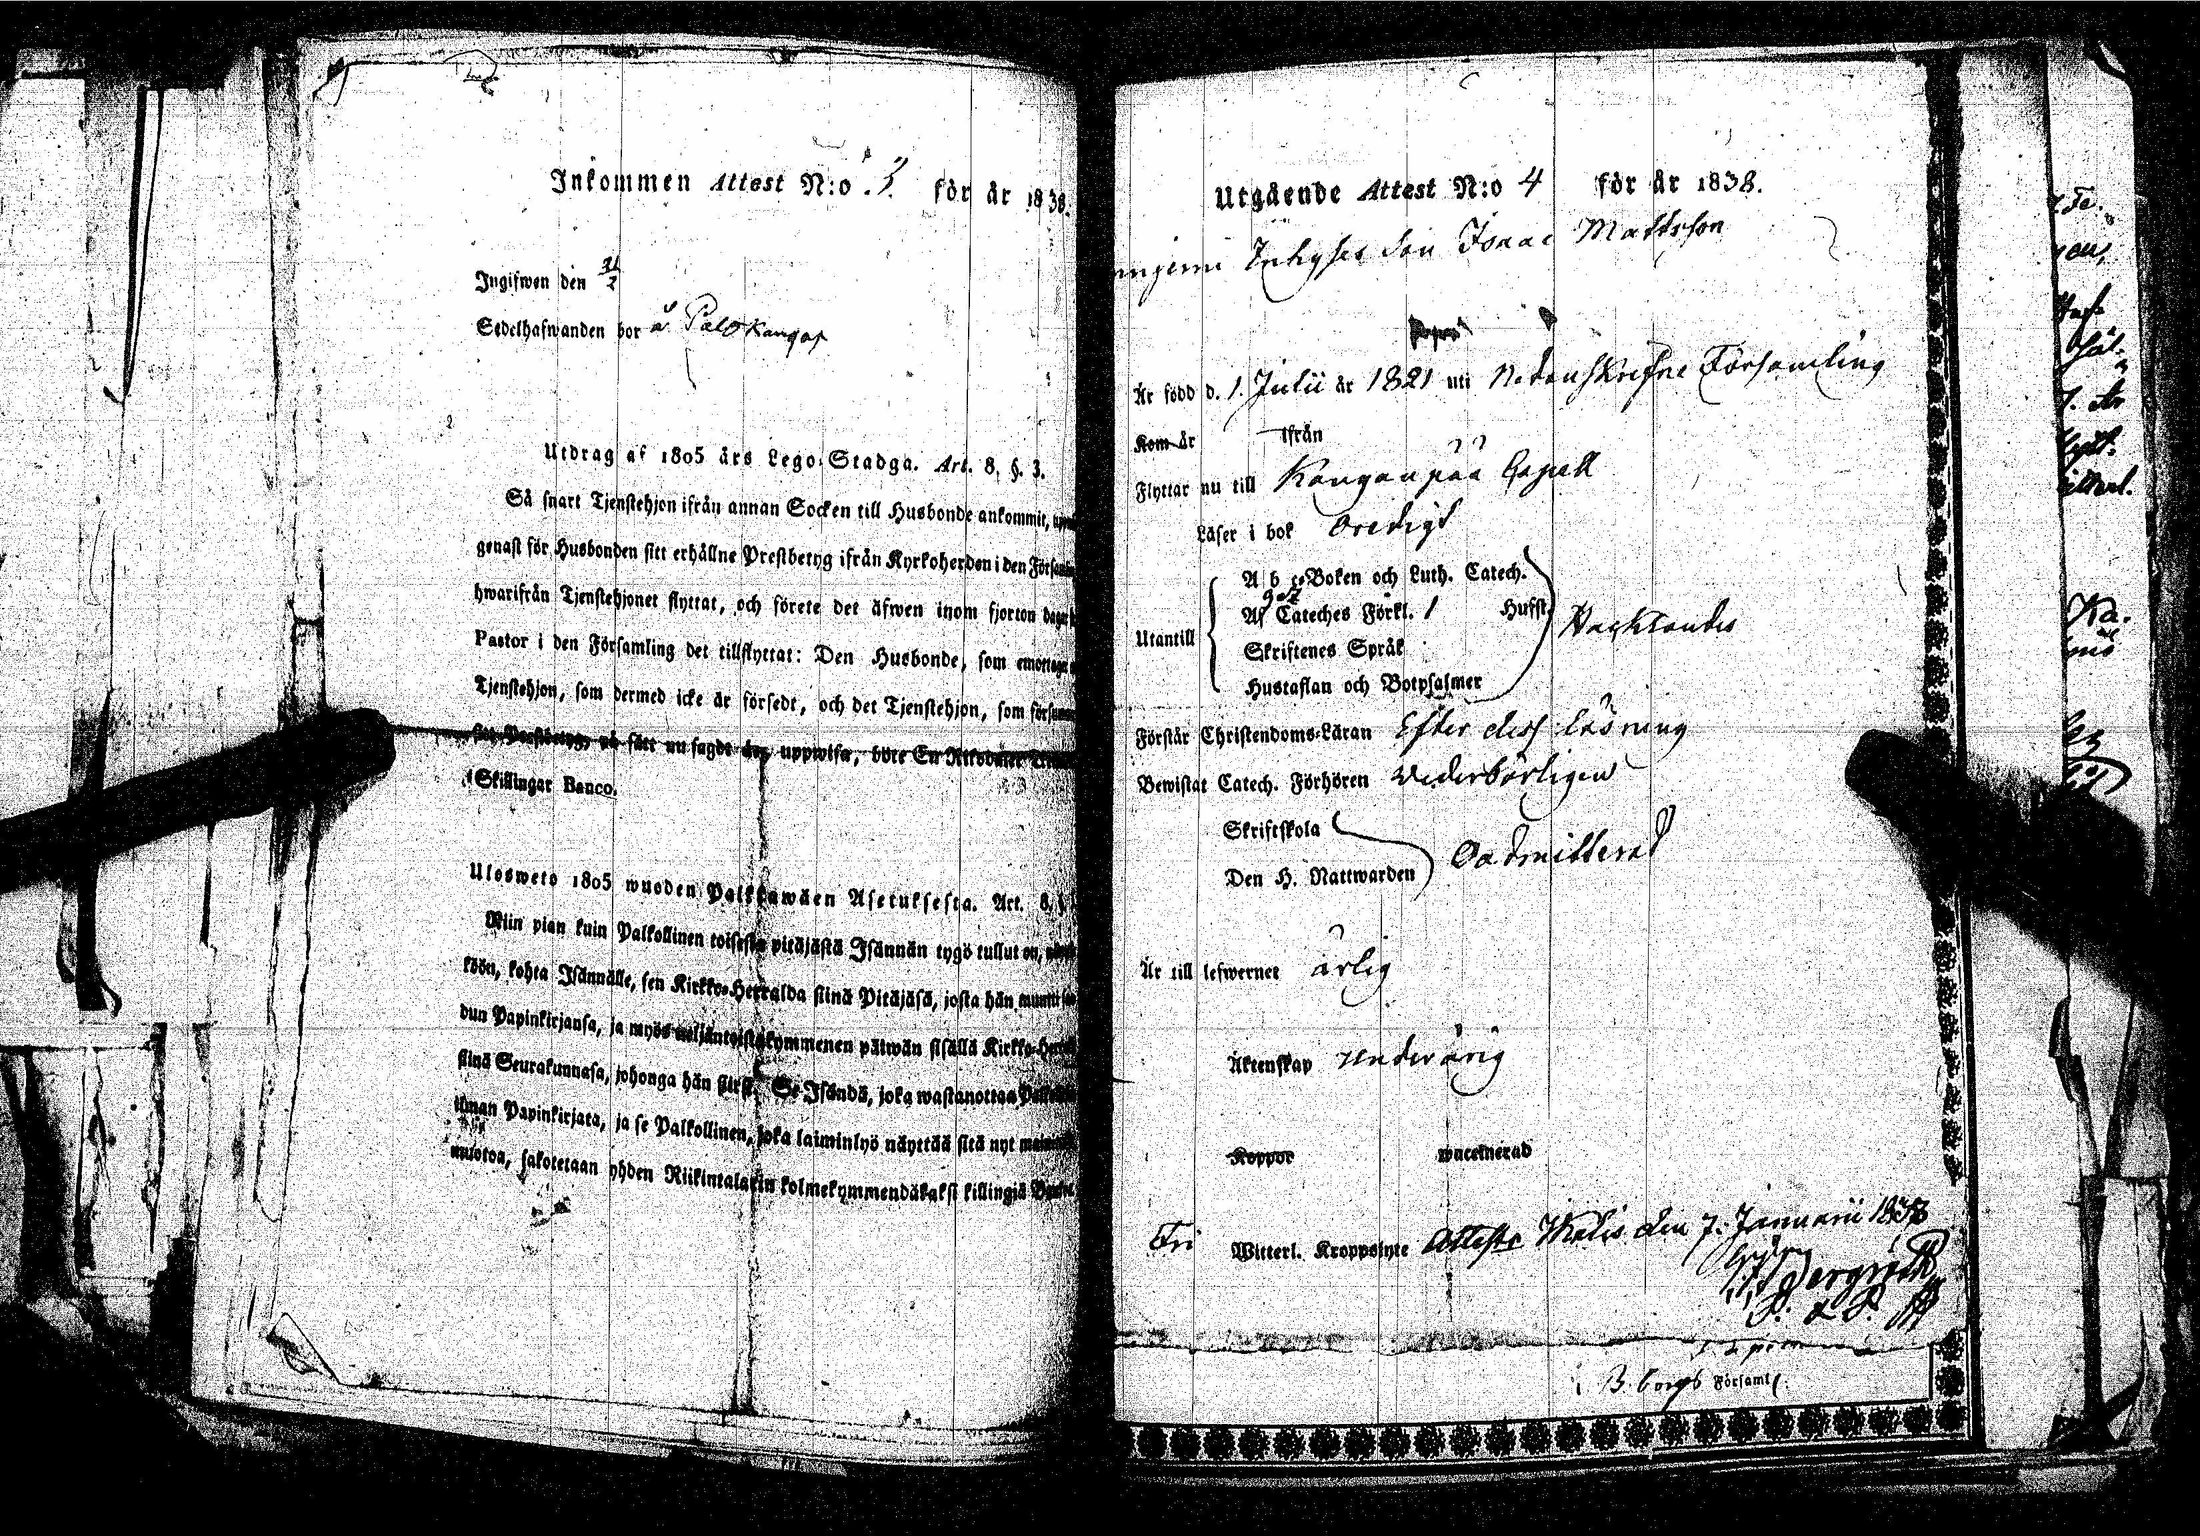 Inkommen Attest N:o 3. för år 1838.
Ingifwen den 21/2
Sedelhafwanden bor å Palokangas
Utdrag af 1805 års Lego-Stadga. Art. 8, §. 3.
Så snart Tjenstehjon ifrån annan Socken till Husbonde ankommit,
genast för Husbonden sitt erhållne Prestbetyg ifrån Kyrkoherden i den
hwarifrån Tjenstehjonet flyttat, och förete det äfwen inom fjorton
Pastor i den Församling det tillflyttat: Den Husbonde, som
Tjenstehjon, som dermed icke är försedt, och det Tjenstehjon, som
sitt Prestbetyg, på sätt nu sagdt är, uppwisa, böte En Riksdaler
Skillingar Banco.
Ulosweto 1805 wuoden Palkkawäen Asetuksesta. Art. 8, §
Niin pian kuin Palkollinen toisesta pitäjästä Isännän tygö tullut on,
köön, kohta Isännälle, sen Kirkko-Herralda siinä Pitäjäsä, josta hän
dun Papinkirjansa, ja myös neljäntoistakymmenen päiwän sisällä Kirkko-
siinä Seurakunnasa, johonga hän siirsi. Se Isändä, joka wastanottaa
ilman Papinkirjata, ja se Palkollinen, joka laiminlyö näyttää sitä nyt
muotoa, sakotetaan yhden Riikintalarin kolmekymmendäkaksi killingiä
Utgående Attest N:o 4 för år 1838.
Inhyses Son Isaac Mattsson
Är född d. 1. Julii år 1821 uti Nedanskrefne Församling
Kom år ifrån
Flyttar nu till Kanganpää Capell
Läser i bok Oredigt
A b c-Boken och Luth. Catech.
Af Cateches Förkl. Husst.
Utantill
Skriftenes Språk
Hustaflan och Botpsalmer
Förstår Christendoms-Läran Efter dess läsning
Bewistat Catech. Förhören Wederbörligen
Skriftskola
Den H. Nattwarden Oadmitterad
Är till lefwernet ärlig
Äktenskap underårig
Koppor waccinerad
Fri Witterl. Kroppslyte den 7. Januarii 1838
Församl.